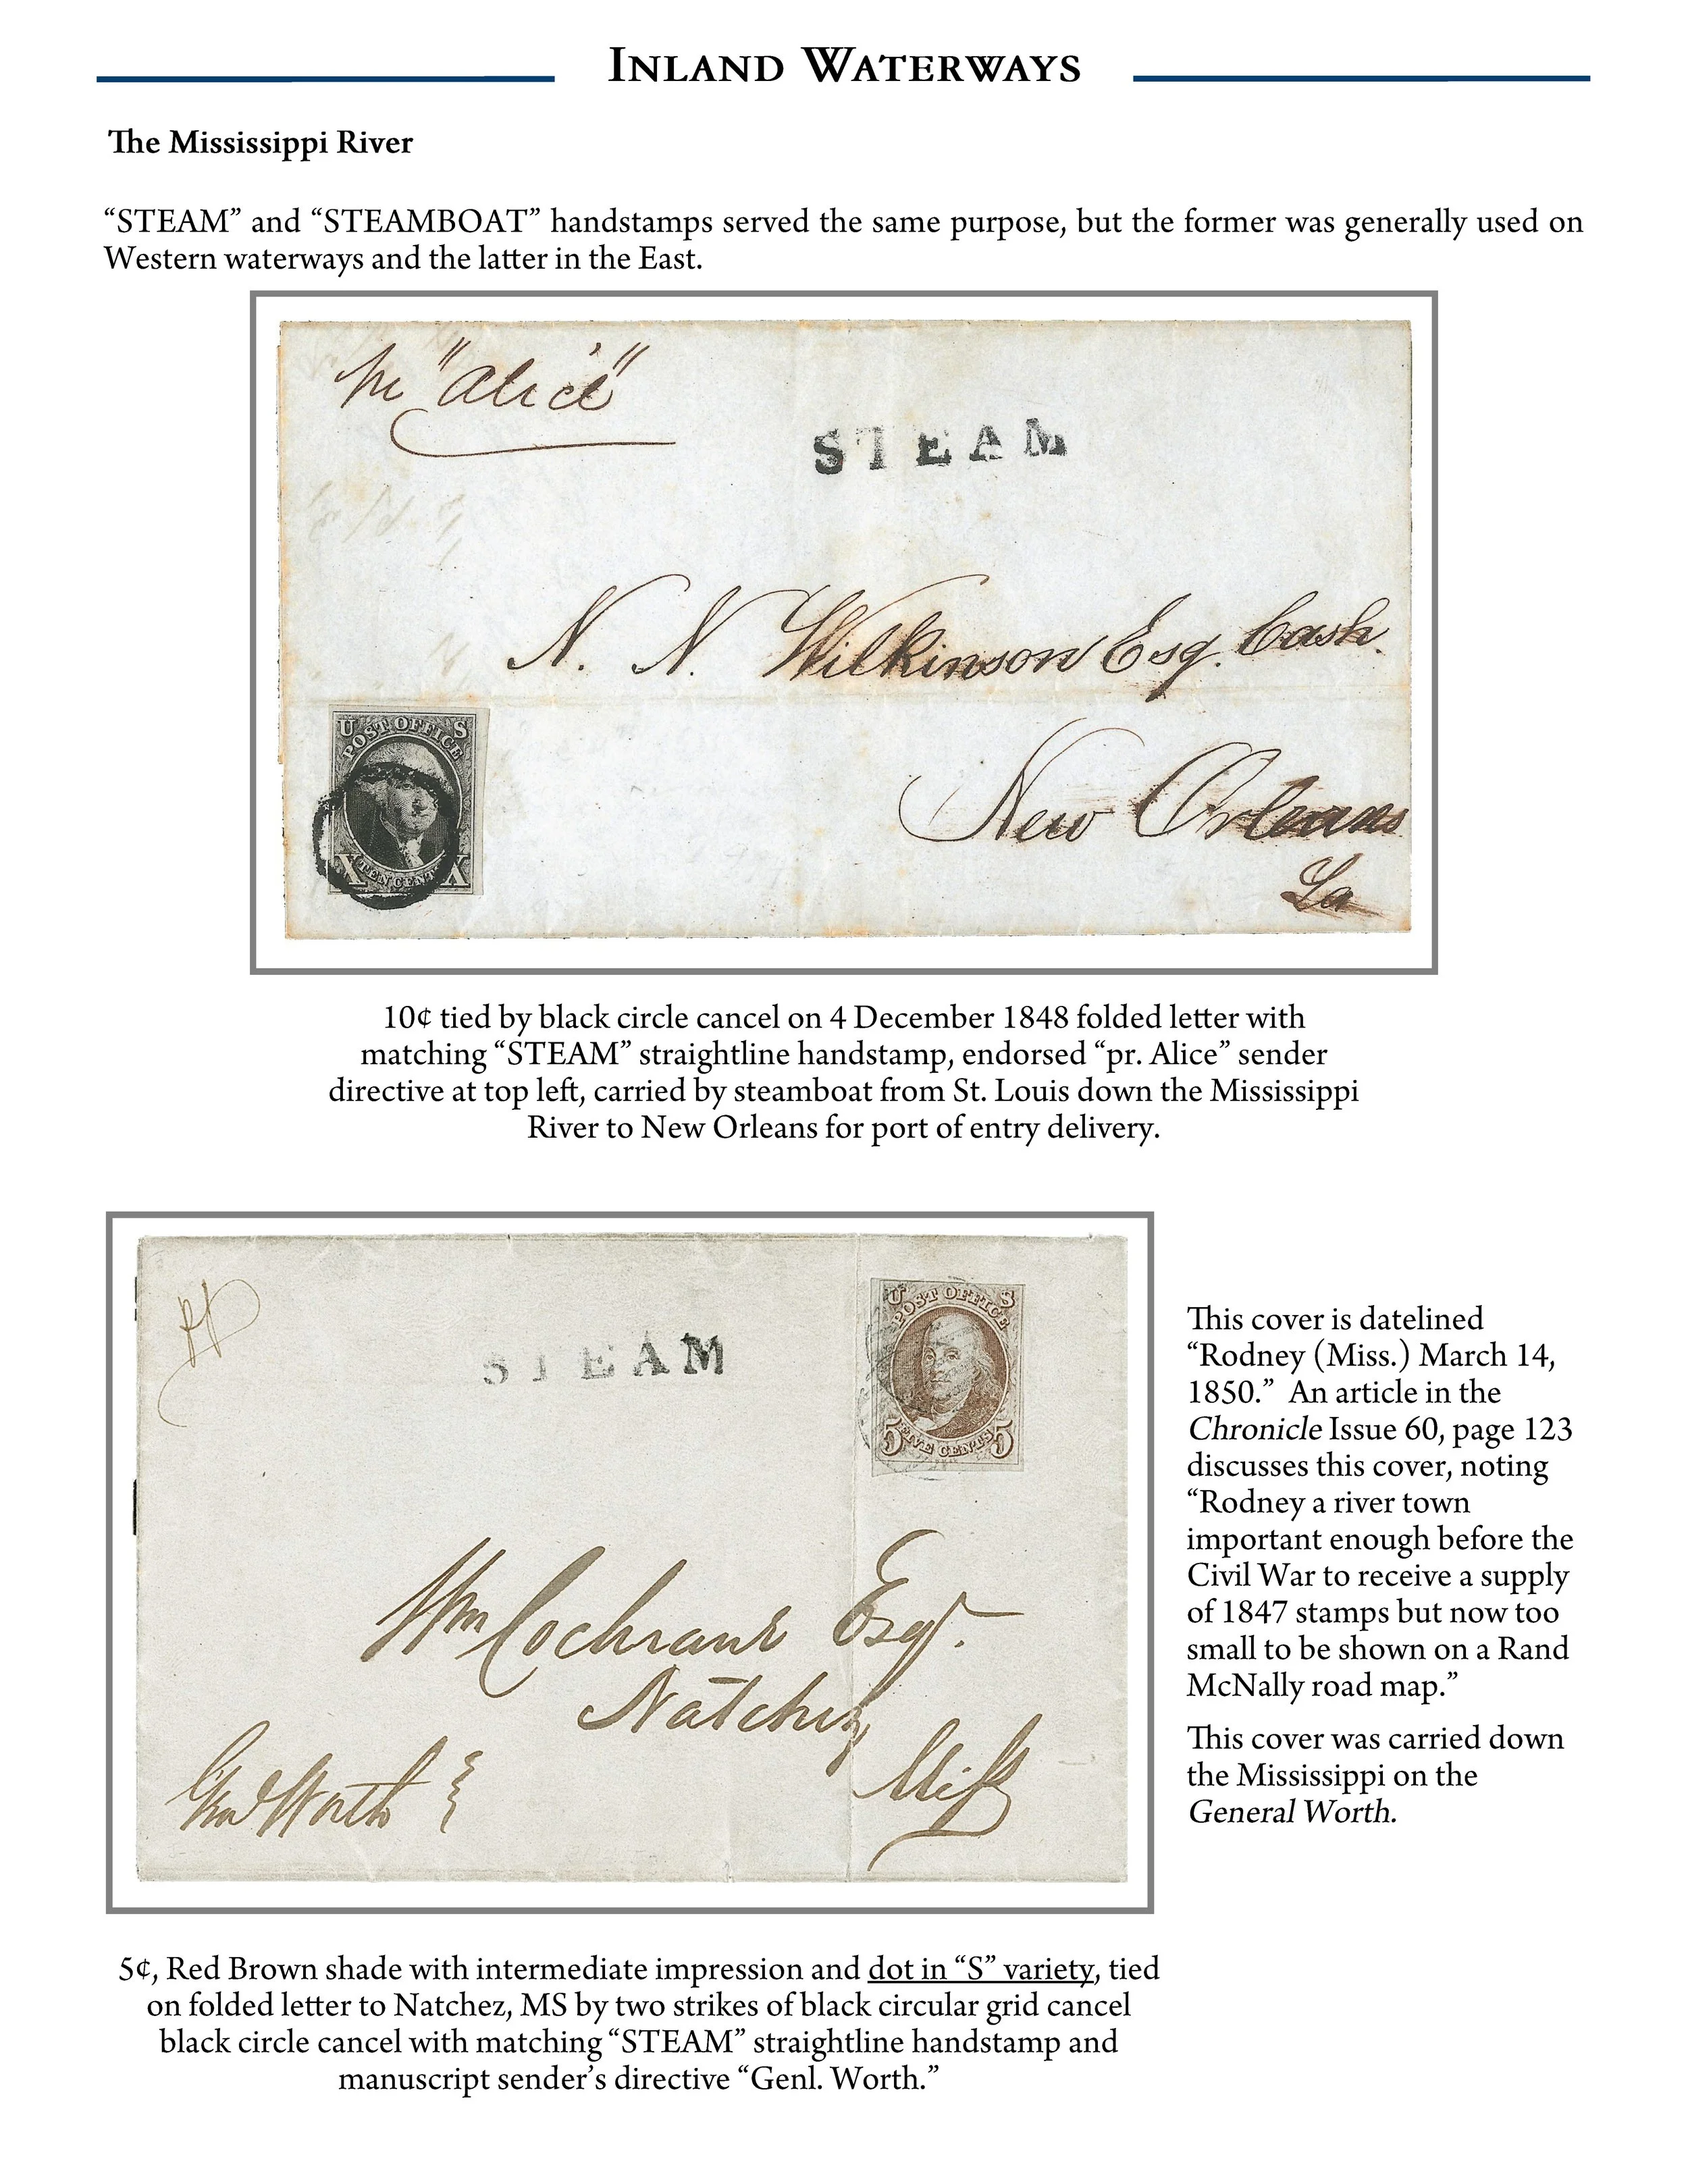 INLAND WATERWAYS
The Mississippi River
“STEAM” and “STEAMBOAT” handstamps served the same purpose, but the former was generally used on
Western waterways and the latter in the East.
pr "Alice"
STEAM
N. N. Wilkinson Esq. Cash.
U S
POST OFFICE
X TEN CENTS X
New Orleans
La
10¢ tied by black circle cancel on 4 December 1848 folded letter with
matching “STEAM” straightline handstamp, endorsed “pr. Alice” sender
directive at top left, carried by steamboat from St. Louis down the Mississippi
River to New Orleans for port of entry delivery.
STEAM
U S
POST OFFICE
5 FIVE CENTS 5
Wm Cochrane Esqr.
Natchez
Miss
Genl Worth
This cover is datelined
“Rodney (Miss.) March 14,
1850.” An article in the
Chronicle Issue 60, page 123
discusses this cover, noting
“Rodney a river town
important enough before the
Civil War to receive a supply
of 1847 stamps but now too
small to be shown on a Rand
McNally road map.”
This cover was carried down
the Mississippi on the
General Worth.
5¢, Red Brown shade with intermediate impression and dot in “S” variety, tied
on folded letter to Natchez, MS by two strikes of black circular grid cancel
black circle cancel with matching “STEAM” straightline handstamp and
manuscript sender’s directive “Genl. Worth.”